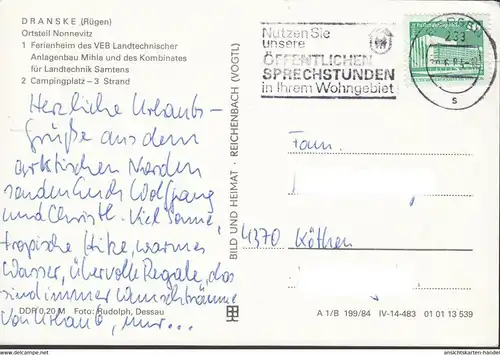 DRANSKE (Rügen)
Ortsteil Nonnevitz
1 Ferienheim des VEB Landtechnischer
Anlagenbau Mihla und des Kombinates
für Landtechnik Samtens
2 Campingplatz – 3 Strand
Herzliche Urlaubs-
grüße aus dem
arktischen Norden
senden Euch Wolfgang
und Christl. Viel Sonne,
tropische Hitze, warmes
Wasser, übervolle Regale, das
sind immer Wunschträume
von Urlaub, nur...
DDR 0,20 M Foto: Rudolph, Dessau
BILD UND HEIMAT · REICHENBACH (VOGTL)
Nutzen Sie
unsere
ÖFFENTLICHEN
SPRECHSTUNDEN
in Ihrem Wohngebiet
233
s
Fam.
4370 Köthen
A 1/B 199/84 IV-14-483 01 01 13 539
www.ansichtskarten-handel.de